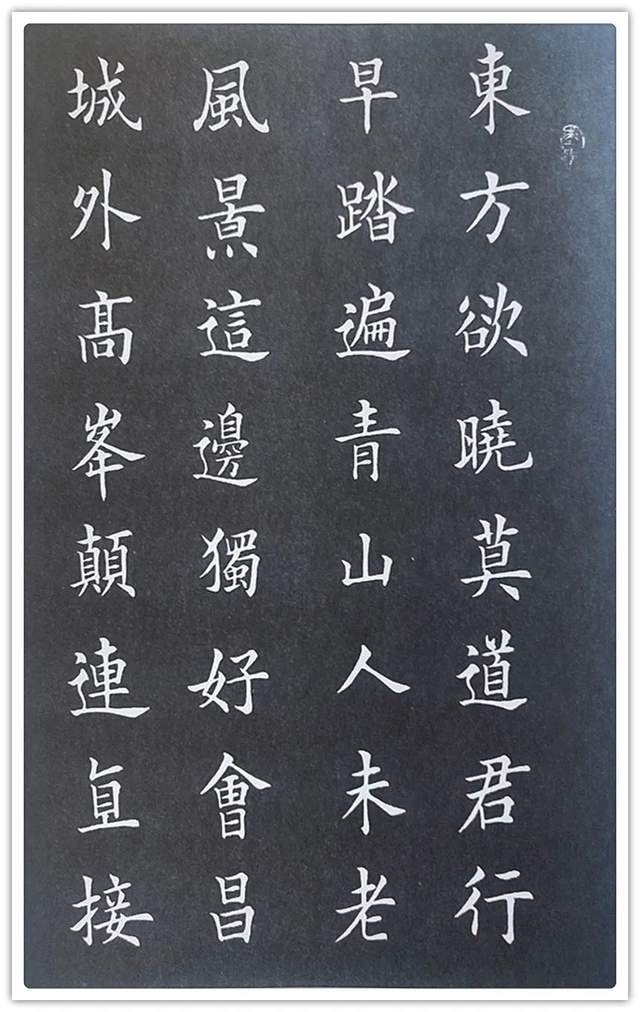 東方欲曉莫道君行
早踏遍青山人未老
風景這邊獨好會昌
城外髙峯顛連直接